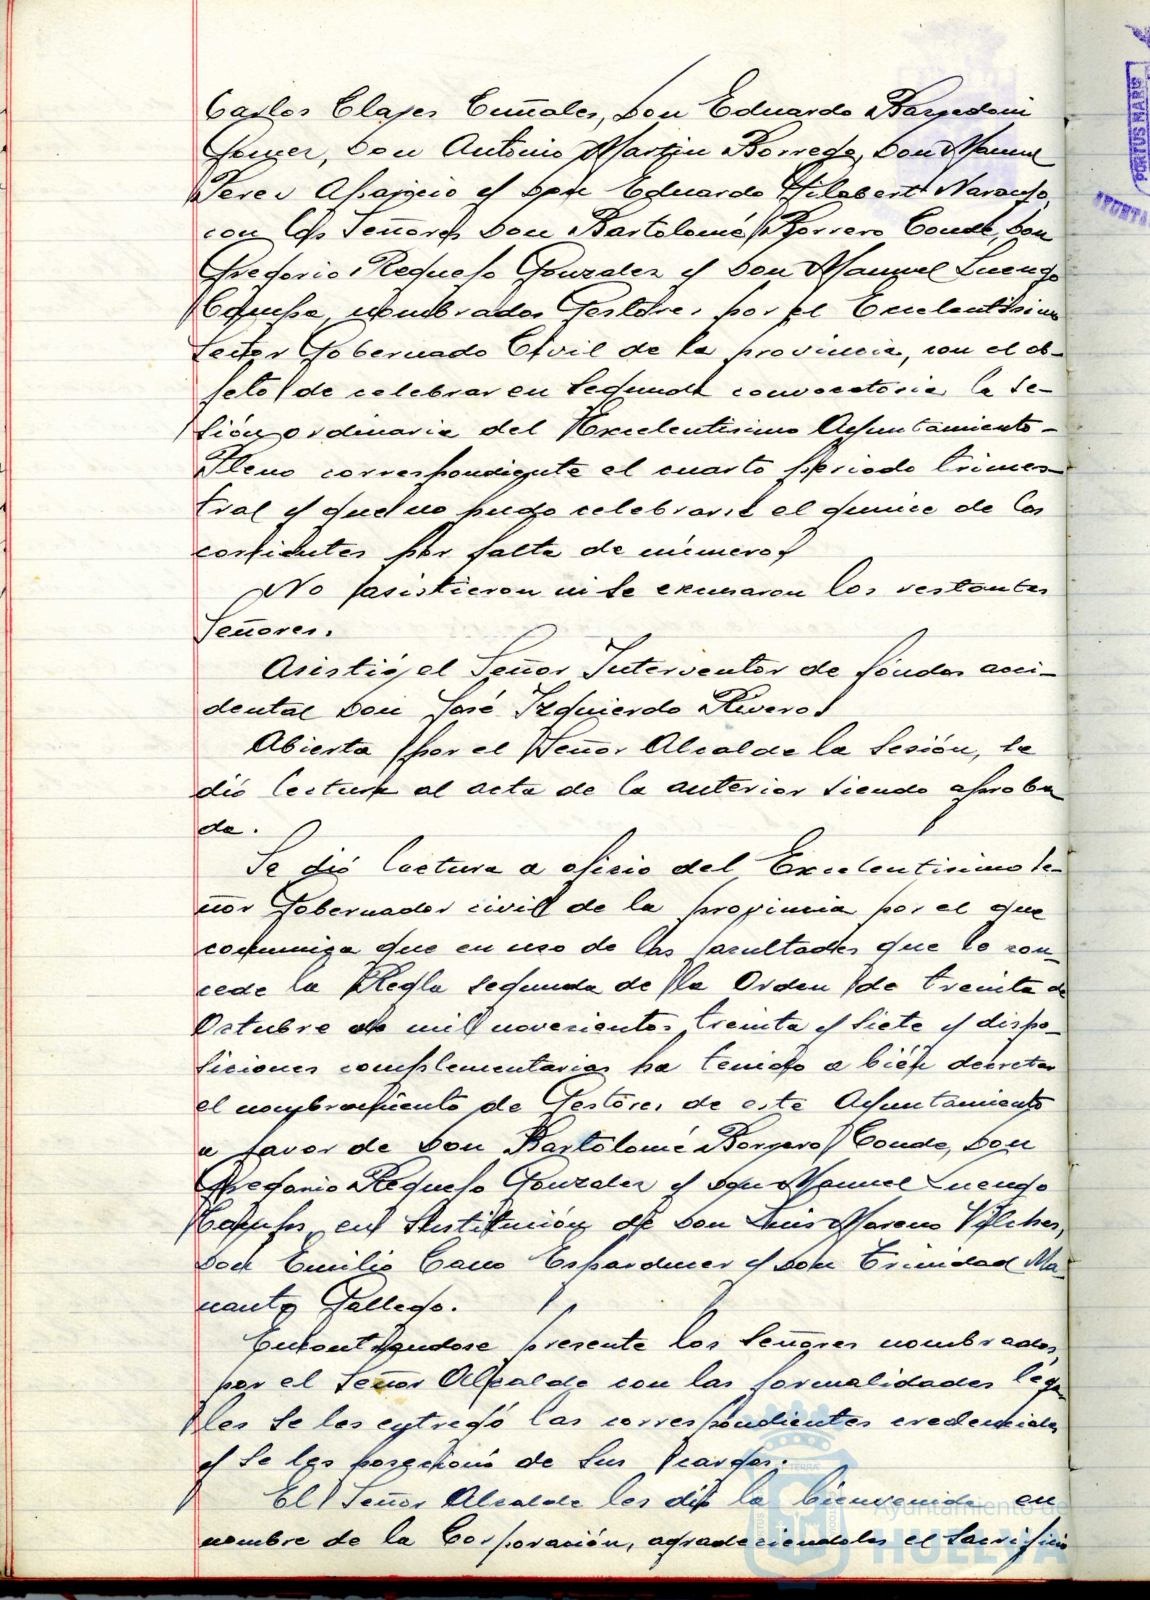 Carlos Clajes Cuñales, Don Eduardo Barredoni
Gomez, Don Antonio Martin Borrego, Don Manuel
Perez Aparicio y Don Eduardo Gilabert Naranjo,
con los Señores Don Bartolomé Borrero Conde, Don
Gregorio Requejo Gonzalez y Don Manuel Luengo
nombrados Gestores por el Excelentisimo
Señor Gobernado Civil de la provincia, con el ob-
jeto de celebrar en segunda convocatoria la se-
sión ordinaria del Excelentisimo Ayuntamiento-
Pleno correspondiente el cuarto periodo trimes-
tral y que no pudo celebrarse el quince de los
corrientes por falta de número.
No asistieron ni se excusaron los restantes
Señores.
Asistió el Señor Interventor de fondos acci-
dental Don José Izquierdo Rivero.
Abierta por el Señor Alcalde la Sesión, se
dió lectura al acta de la anterior siendo aproba
da.
Se dió lectura a oficio del Excelentisimo Se-
ñor Gobernador civil de la provincia por el que
comuniga que en uso de las facultades que le con-
cede la Regla segunda de la Orden de treinta de
Octubre de mil novecientos treinta y siete y dispo-
siciones complementarias ha tenido a bién decretar
el nombramiento de Gestores de este Ayuntamiento
a favor de Don Bartolomé Borrero Conde, Don
Gregorio Requejo Gonzalez y Don Manuel Luengo
en sustitución de Don Luis Moreno Vilches,
Don Emilio Cano Esparducer y Don Trinidad Ma-
nanto Gallego.
Encontrandose presente los Señores nombrados,
por el Señor Alcalde con las formalidades lega-
les se les entregó las correspondientes credenciales
y se les posecionó de sus cargos.
El Señor Alcalde les dió la bienvenida en
nombre de la Corporación, agradeciendoles el sacrificio
PORTUS MARIS
AYUNTA
Ayuntamiento de
HUELVA